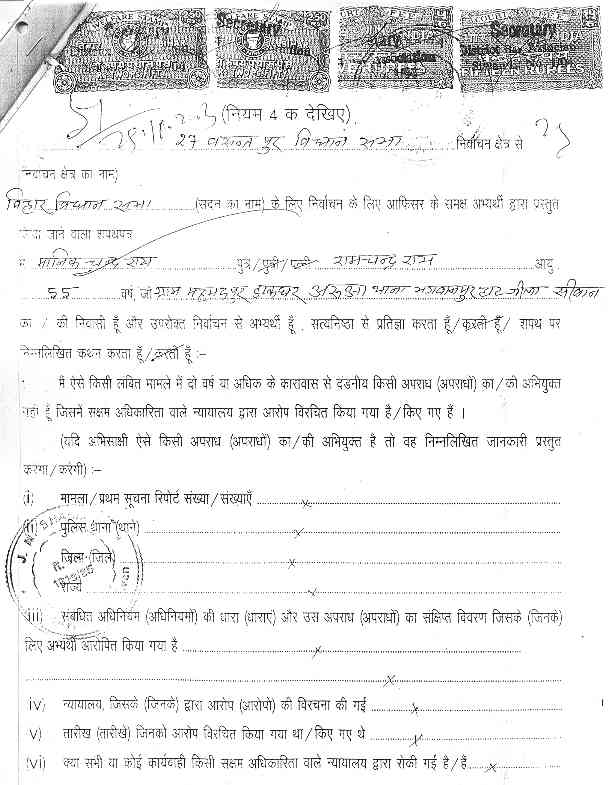 Secretary
Secretary
District Bar Association
(नियम 4 क देखिए)
27 वसन्तपुर विधान सभा निर्वाचन क्षेत्र से
निर्वाचन क्षेत्र का नाम)
विहार विधान सभा (सदन का नाम) के लिए निर्वाचन के लिए आफिसर के समक्ष अभ्यर्थी द्वारा प्रस्तुत
किया जाने वाला शपथपत्र
मानिक चन्द्र राम पुत्र/पुत्री/पत्नी रामचन्द्र राम आयु
55 वर्ष, जो ग्राम महमदपुर डाकघर अरुआ थाना भगवानपुर हाट जिला सीवान
का / की निवासी हूँ और उपरोक्त निर्वाचन से अभ्यर्थी हूँ , सत्यनिष्ठा से प्रतिज्ञा करता हूँ/करती हूँ/ शपथ पर
निम्नलिखित कथन करता हूँ/करती हूँ :–
मैं ऐसे किसी लंवित मामले में दो वर्ष या अधिक के कारावास से दंडनीय किसी अपराध (अपराधों) का/की अभियुक्त
नहीं हूँ जिसमें सक्षम अधिकारिता वाले न्यायालय द्वारा आरोप विरचित किया गया है/किए गए हैं ।
(यदि अभिसाक्षी ऐसे किसी अपराध (अपराधों) का/की अभियुक्त है तो वह निम्नलिखित जानकारी प्रस्तुत
करेगा/करेगी) :–
(i) मामला/प्रथम सूचना रिपोर्ट संख्या/संख्याएँ x
(ii) पुलिस थाना (थाने) x
जिला (जिले) x
राज्य x
iii) संबंधित अधिनियम (अधिनियमों) की धारा (धाराएं) और उस अपराध (अपराधों) का संक्षिप्त विवरण जिसके (जिनके)
लिए अभ्यर्थी आरोपित किया गया है x
x
iv) न्यायालय, जिसके (जिनके) द्वारा आरोप (आरोपों) की विरचना की गई x
v) तारीख (तारीखें) जिनको आरोप विरचित किया गया था/किए गए थे x
(vi) क्या सभी या कोई कार्यवाही किसी सक्षम अधिकारिता वाले न्यायालय द्वारा रोकी गई है/हैं x